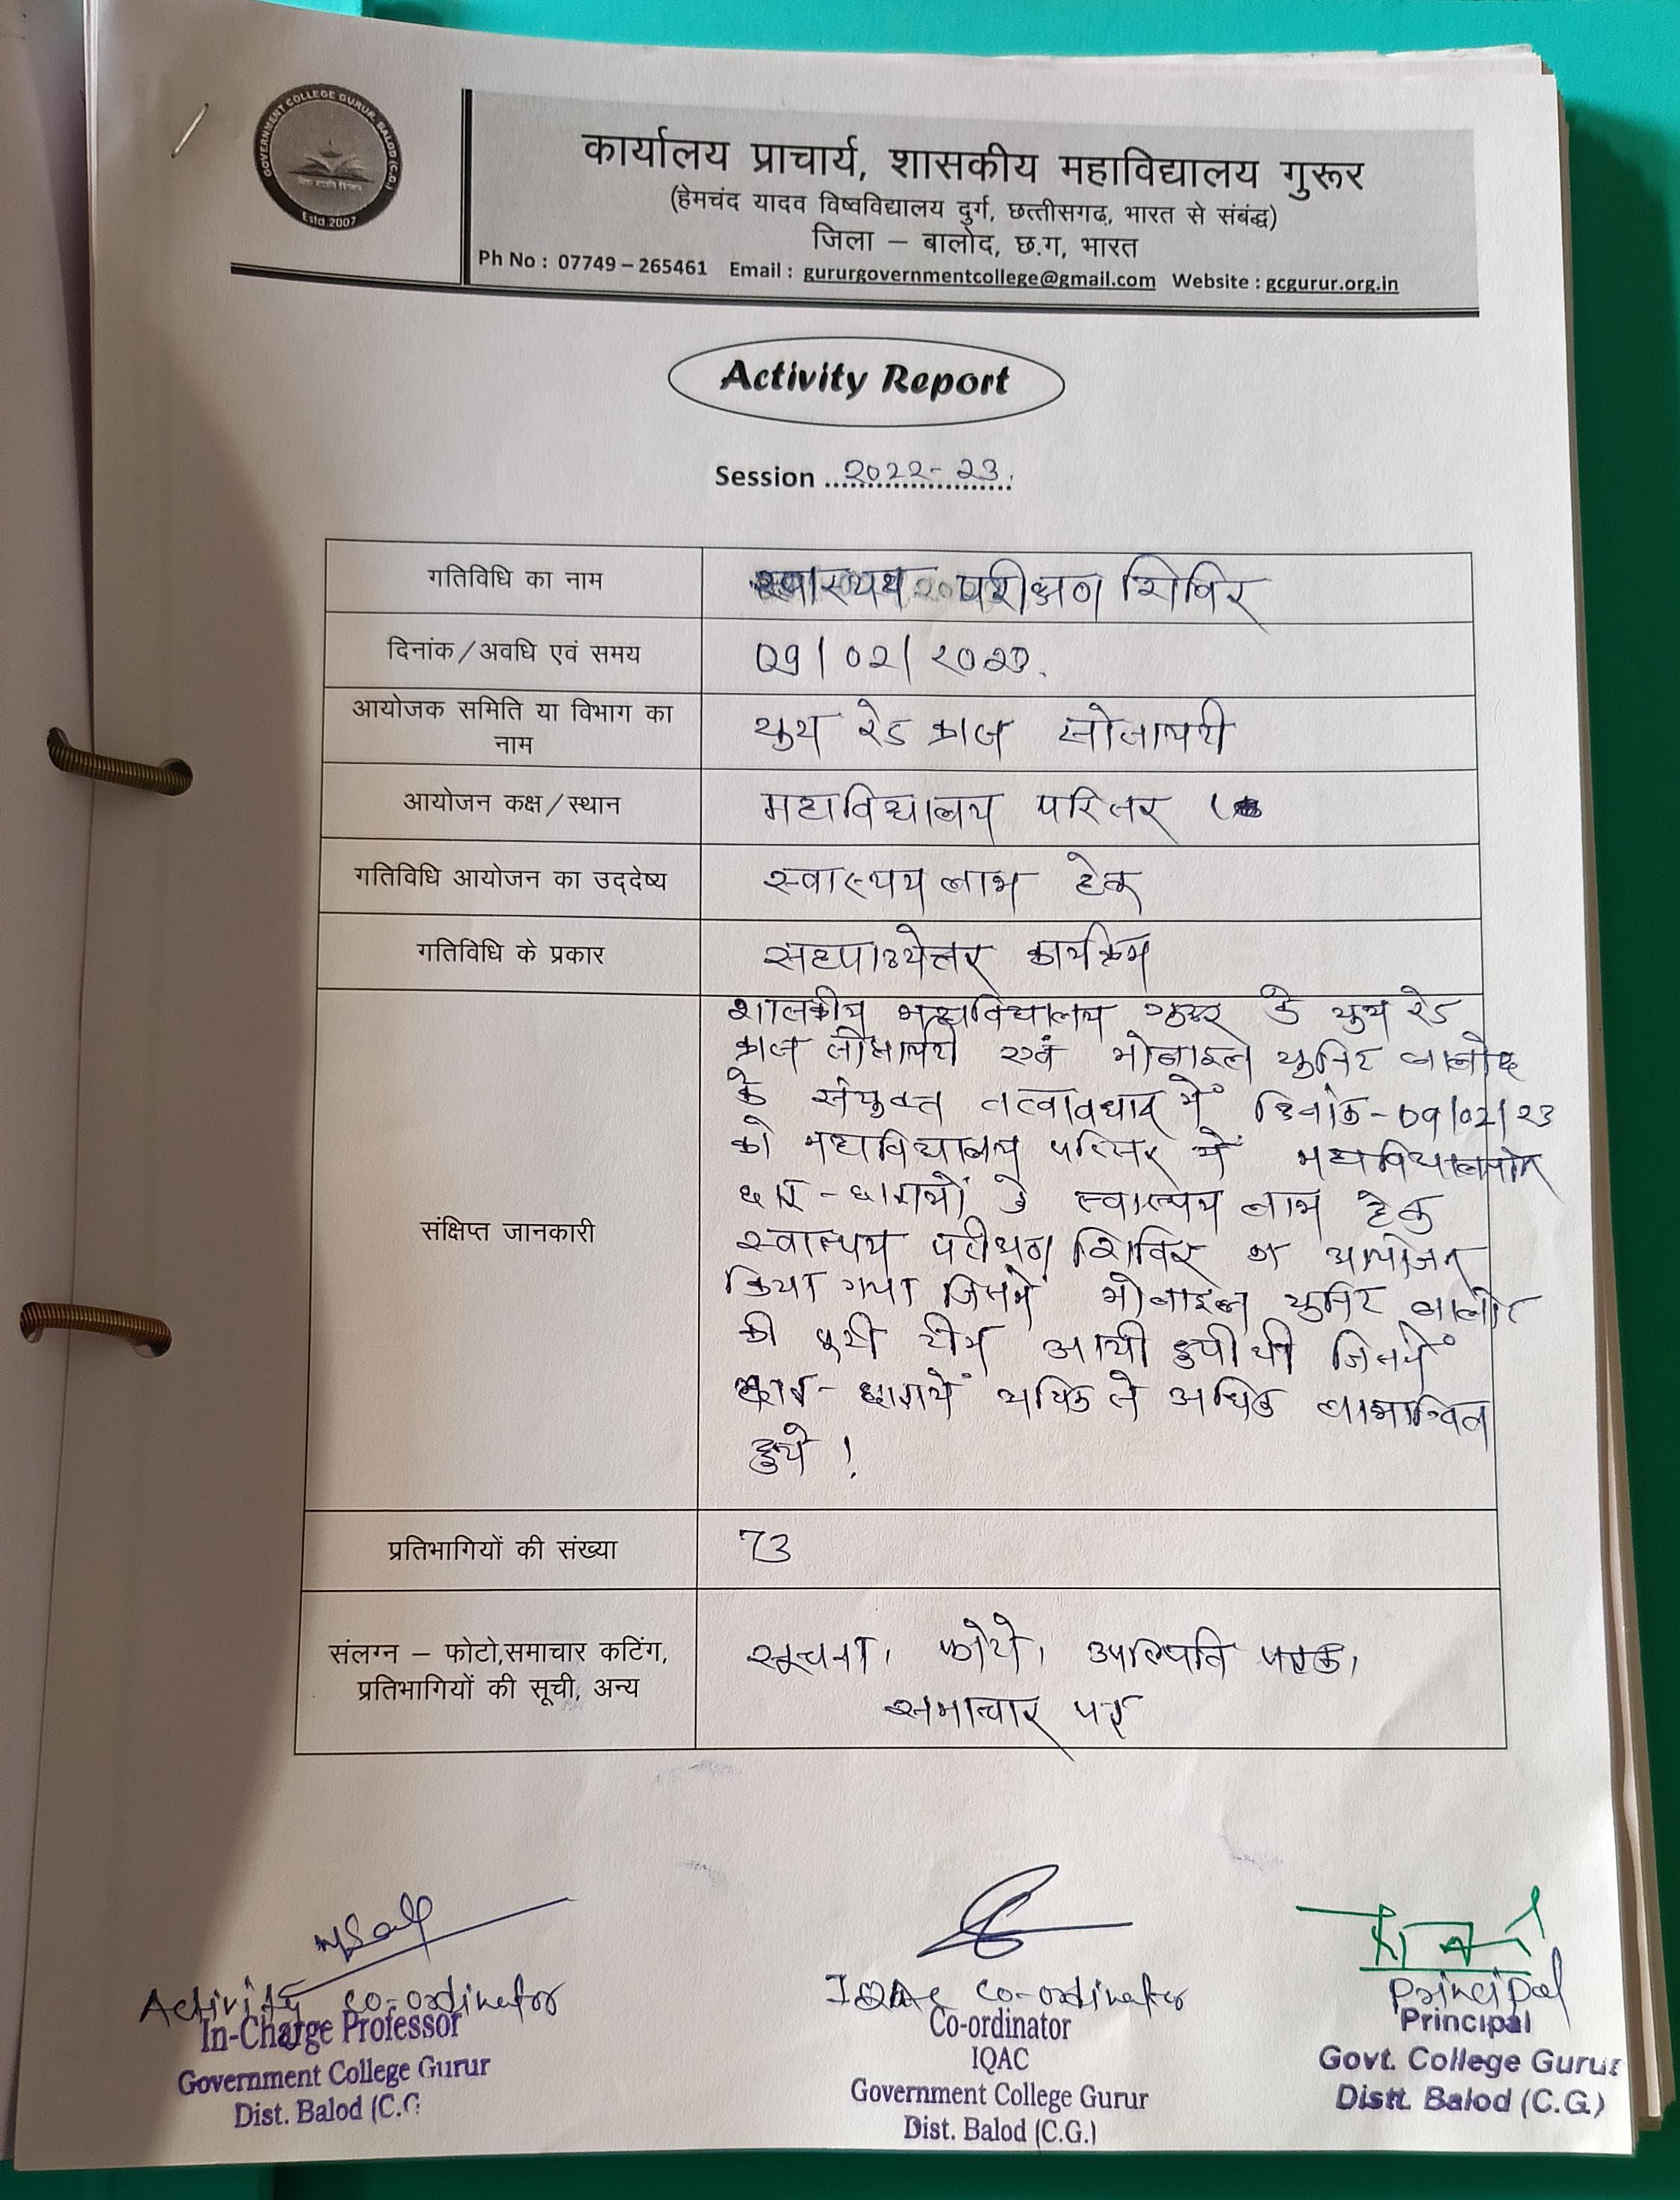 GOVERNMENT COLLEGE GURUR, BALOD (C.G.)
Estd 2007
कार्यालय प्राचार्य, शासकीय महाविद्यालय गुरूर
(हेमचंद यादव विष्वविद्यालय दुर्ग, छत्तीसगढ़, भारत से संबंद्ध)
जिला – बालोद, छ.ग, भारत
Ph No : 07749 – 265461 Email : gururgovernmentcollege@gmail.com Website : gcgurur.org.in
Activity Report
Session 2022-23.
गतिविधि का नाम
स्वास्थ्य परीक्षण शिविर
दिनांक/अवधि एवं समय
09/02/2023.
आयोजक समिति या विभाग का
नाम
यूथ रेड क्रास सोसायटी
आयोजन कक्ष/स्थान
महाविद्यालय परिसर
गतिविधि आयोजन का उद्देष्य
स्वास्थ्य लाभ हेतु
गतिविधि के प्रकार
सहपाठ्येत्तर कार्यक्रम
संक्षिप्त जानकारी
शासकीय महाविद्यालय गुरूर के यूथ रेड
क्रास सोसायटी एवं मोबाइल यूनिट बालोद
के संयुक्त तत्वावधान में दिनांक-09/02/23
को महाविद्यालय परिसर में
छात्र-छात्राओं के स्वास्थ्य लाभ हेतु
स्वास्थ्य परीक्षण शिविर का आयोजन
किया गया जिसमें मोबाइल यूनिट बालोद
की पूरी टीम आयी हुयी थी जिसमें
छात्र-छात्रायें अधिक से अधिक लाभान्वित
हुये !
प्रतिभागियों की संख्या
73
संलग्न – फोटो,समाचार कटिंग,
प्रतिभागियों की सूची, अन्य
सूचना, फोटो, उपस्थिति पत्रक,
समाचार पत्र
Activity co-ordinator
In-Charge Professor
Government College Gurur
Dist. Balod (C.G
IQAC co-ordinator
Co-ordinator
IQAC
Government College Gurur
Dist. Balod (C.G.)
Principal
Principal
Govt. College Gurur
Distt. Balod (C.G.)